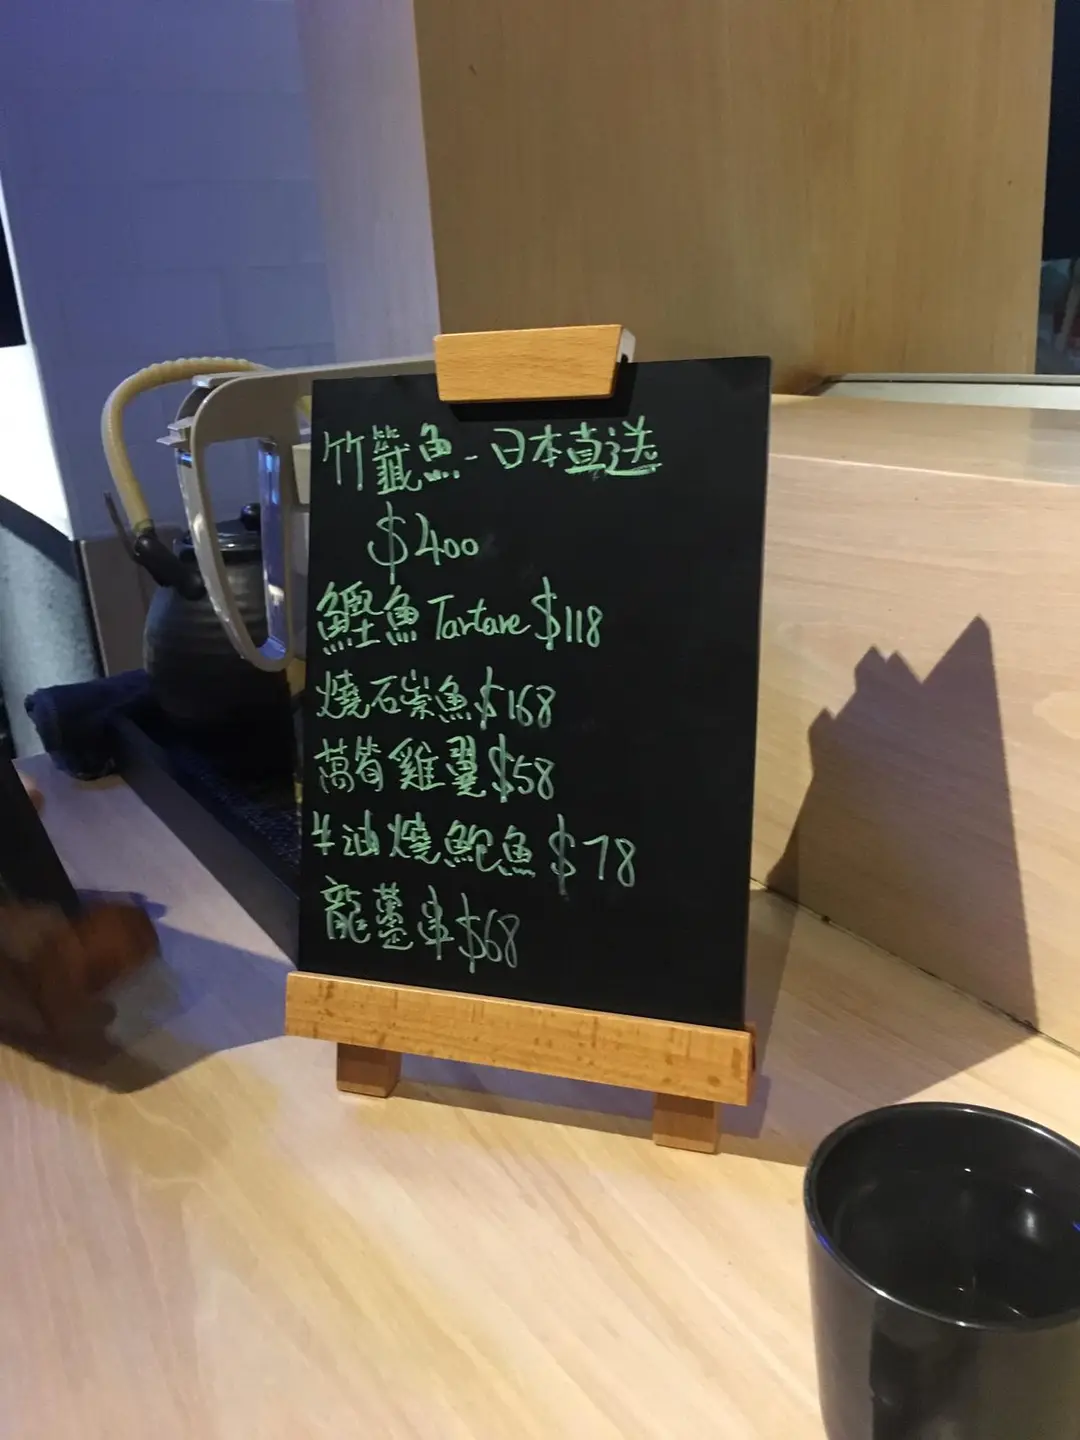 竹籤魚-日本直送
$400
鰹魚 Tartare $118
燒石崇魚 $168
雞翼 $58
牛油燒鮑魚 $78
龍躉串 $68